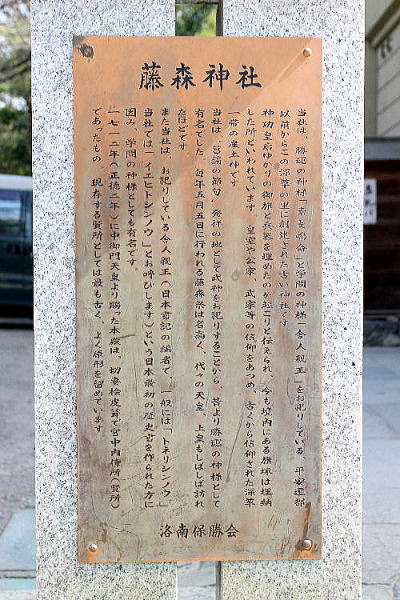 藤森神社
当社は、勝運の神様「素戔嗚命」と学問の神様「舎人親王」をお祀りしている、平安遷都
以前からこの深草の里に創建された古い神社です。
神功皇后ゆかりの御旗と兵器を埋めたのが起こりと伝えられ、今も境内にある旗塚は埋納
した所といわれています。皇室や公家、武家等の信仰をあつめ、古くから信仰された深草
一帯の産土神です。
当社は、菖蒲の節句 発祥の地として武神をお祀りすることから、昔より勝運の神様として
有名でした。毎年五月五日に行われる藤森祭は名高く、代々の天皇、上皇もしばしば訪れ
たほどです
また当社は、お祀りしている舎人親王(日本書記の編者で、一般には「トネリシンノウ」
当社では「イエヒトシンノウ」とお呼びします)という日本最初の歴史書を作られた方に
因み、学問の神様としても有名です。
一七一二年(正徳二年)に中御門天皇より賜った本殿は、切妻桧皮葺で宮中内侍所(賢所)
であったもの 現存する賢所としては最も古く、よく原形を留めています。
洛南保勝会